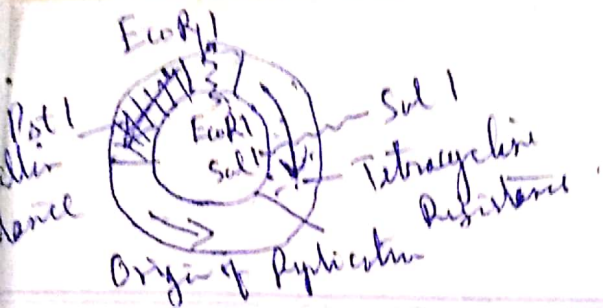 EcoR1
Pst 1
EcoR1
Sal 1
Sal 1
Tetracycline
Resistance
Origin of Replication